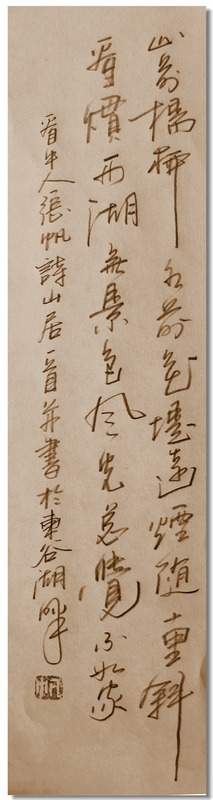 山前橋擰水前花墻遠煙随車斜
看慣西湖無景色風光總覺不如家
看牛人張帆詩山居一首并書於東谷湖畔